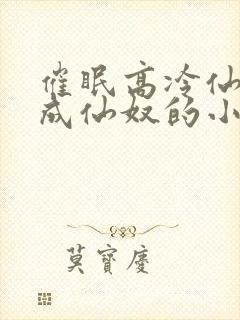 催眠高冷仙
成仙奴的小
莫寶慶